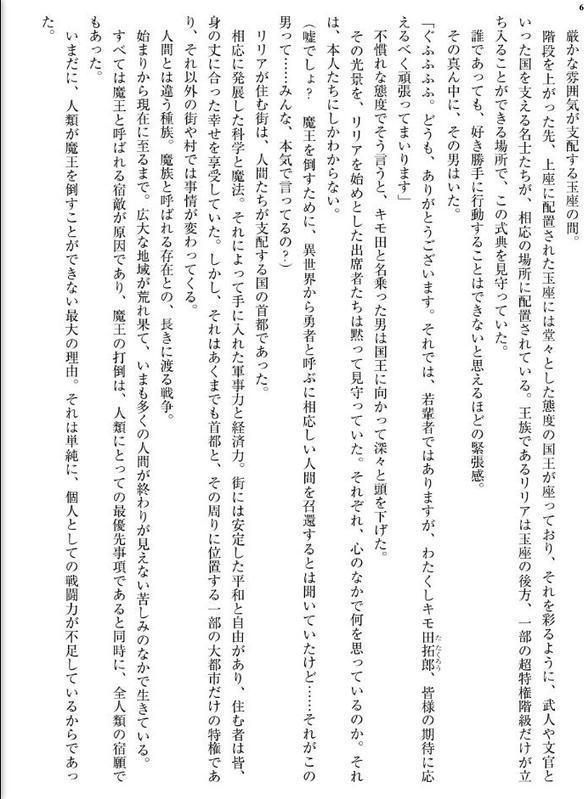 6
厳かな雰囲気が支配する玉座の間。
階段を上がった先、上座に配置された玉座には堂々とした態度の国王が座っており、それを彩るように、武人や文官と
いった国を支える名士たちが、相応の場所に配置されている。王族であるリリアは玉座の後方、一部の超特権階級だけが立
ち入ることができる場所で、この式典を見守っていた。
誰であっても、好き勝手に行動することはできないと思えるほどの緊張感。
その真ん中に、その男はいた。
「ぐふふふふ。どうも、ありがとうございます。それでは、若輩者ではありますが、わたくしキモ田拓郎、皆様の期待に応
えるべく頑張ってまいります」
不慣れな態度でそう言うと、キモ田と名乗った男は国王に向かって深々と頭を下げた。
その光景を、リリアを始めとした出席者たちは黙って見守っていた。それぞれ、心のなかで何を思っているのか。それ
は、本人たちにしかわからない。
（嘘でしょ？　魔王を倒すために、異世界から勇者と呼ぶに相応しい人間を召還するとは聞いていたけど……それがこの
男って……みんな、本気で言ってるの？）
リリアが住む街は、人間たちが支配する国の首都であった。
相応に発展した科学と魔法。それによって手に入れた軍事力と経済力。街には安定した平和と自由があり、住む者は皆、
身の丈に合った幸せを享受していた。しかし、それはあくまでも首都と、その周りに位置する一部の大都市だけの特権であ
り、それ以外の街や村では事情が変わってくる。
人間とは違う種族。魔族と呼ばれる存在との、長きに渡る戦争。
始まりから現在に至るまで。広大な地域が荒れ果て、いまも多くの人間が終わりが見えない苦しみのなかで生きている。
すべては魔王と呼ばれる宿敵が原因であり、魔王の打倒は、人類にとっての最優先事項であると同時に、全人類の宿願で
もあった。
いまだに、人類が魔王を倒すことができない最大の理由。それは単純に、個人としての戦闘力が不足しているからであっ
た。